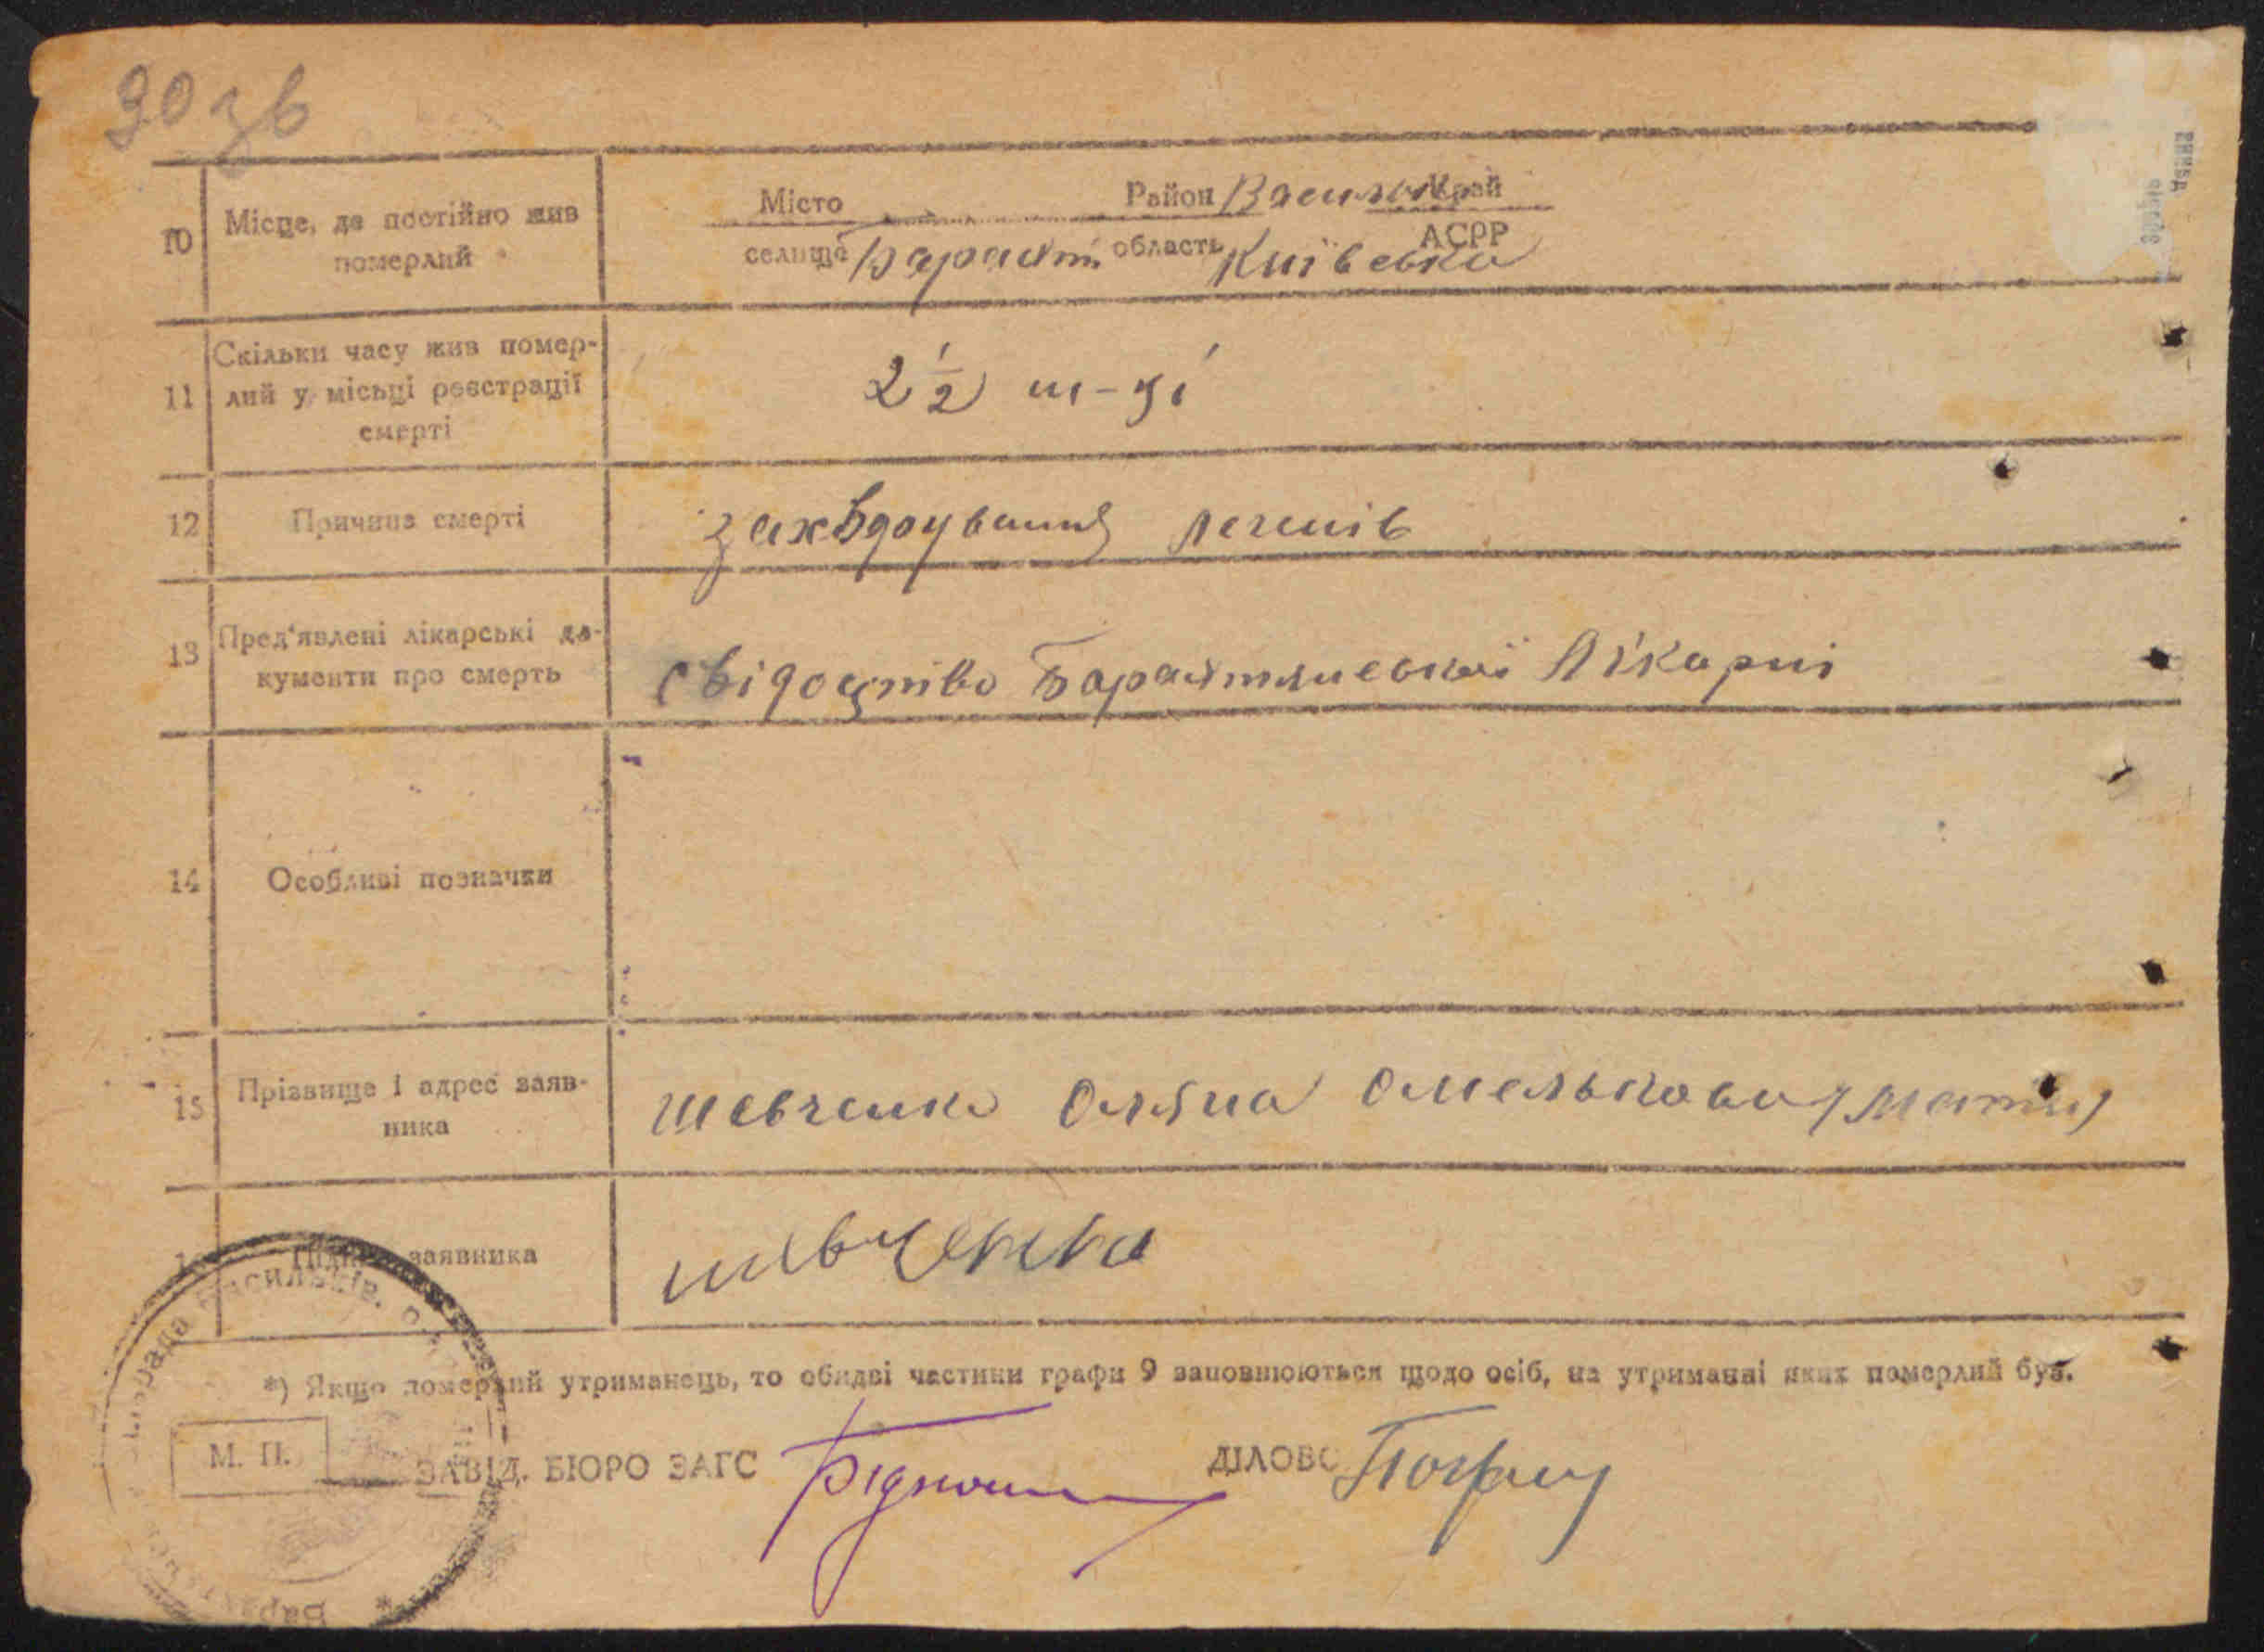 90 зв
Місто Район Васильк Край
10 Місце, де постійно жив померлий
селище Барахт. область Київська АСРР
11 Скільки часу жив помер-
лий у місьці реєстрації
смерті
2 1/2 м-ці
12 Причина смерті захвдоування легенів
13 Пред'явлені лікарські до-
кументи про смерть
свідоцтво Барахтянської лікарні
14 Особливі позначки
15 Прізвище і адрес заяв-
ника
Шевченко Оляна Омелькова (мати)
16 Підпис заявника
Шевченка
*) Якщо померлий утриманець, то обидві частини графи 9 заповнюються щодо осіб, на утриманні яких померлий був.
М. П. ЗАВІД. БЮРО ЗАГС ДІЛОВО